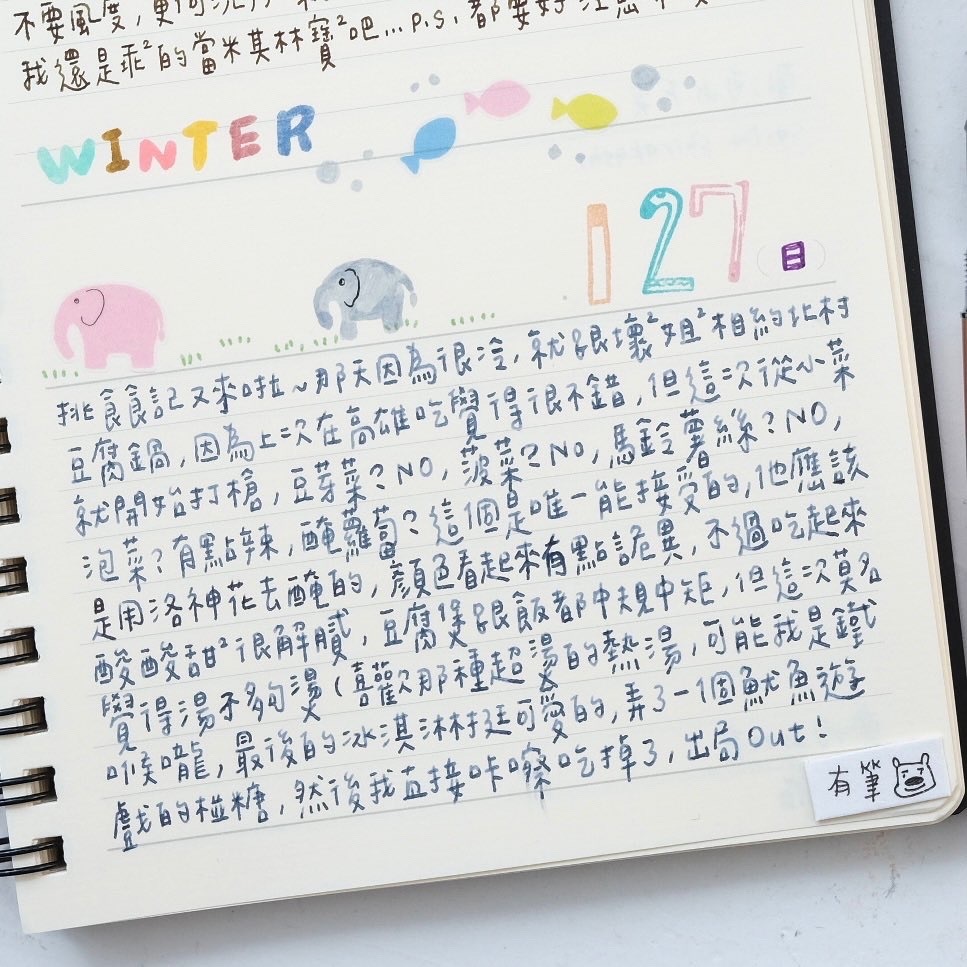 不要風度,更何況
我還是乖²的當米其林寶²吧...p.s.都要好
WINTER
127(日)
挑食食記又來啦~那天因為很冷,就跟壞²姐²相約北村
豆腐鍋,因為上次在高雄吃覺得很不錯,但這次從小菜
就開始打槍,豆芽菜?NO,菠菜?No,馬鈴薯絲?NO,
泡菜?有點辣,醃蘿蔔?這個是唯一能接受的,他應該
是用洛神花去醃的,顏色看起來有點詭異,不過吃起來
酸酸甜²很解膩,豆腐煲跟飯都中規中矩,但這次莫名
覺得湯不夠燙(喜歡那種超燙的熱湯,可能我是鐵
喉嚨,最後的冰淇淋挺可愛的,弄了一個魷魚遊
戲的椪糖,然後我直接咔嚓吃掉了,出局Out!
有筆